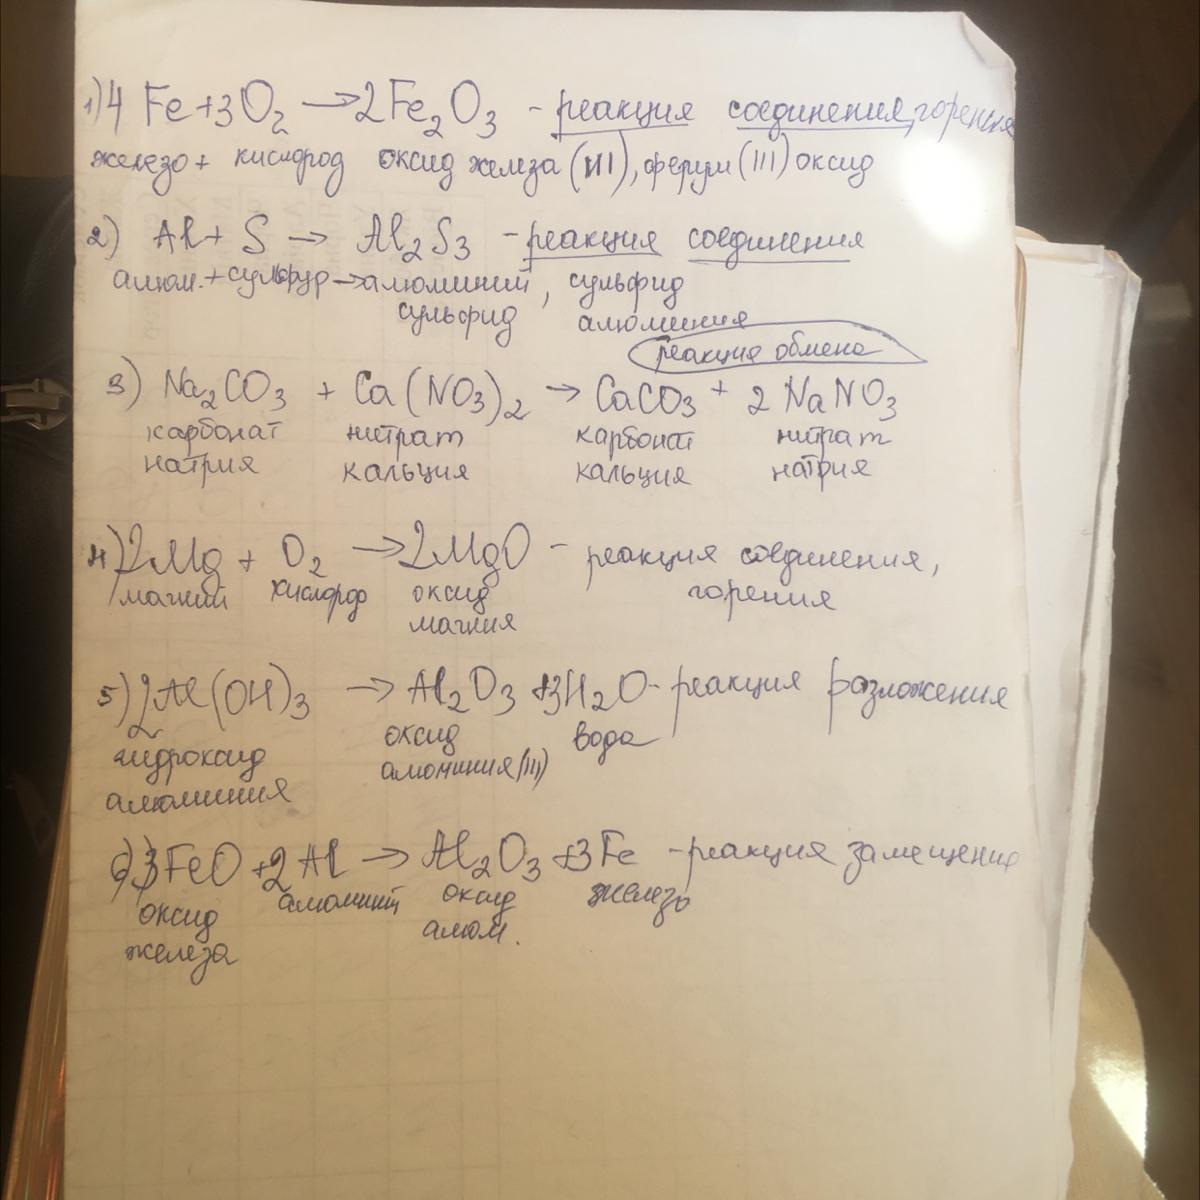 1) 4 Fe + 3O₂ → 2Fe₂O₃ - реакция соединения, горения
железо + кислород оксид железа (III), ферум (III) оксид
2) Al + S → Al₂S₃ - реакция соединения
алюм. + сульфур → алюминий, сульфид
сульфид алюминия
реакция обмена
3) Na₂CO₃ + Ca(NO₃)₂ → CaCO₃ + 2 NaNO₃
карбонат нитрат карбонат нитрат
натрия кальция кальция натрия
4) 2Mg + O₂ → 2MgO - реакция соединения,
магний кислород оксид горения
магния
5) 2Al(OH)₃ → Al₂O₃ + 3H₂O - реакция разложения
гидроксид оксид вода
алюминия алюминия (III)
6) 3FeO + 2Al → Al₂O₃ + 3Fe - реакция замещения
оксид алюминий оксид железо
железа алюм.